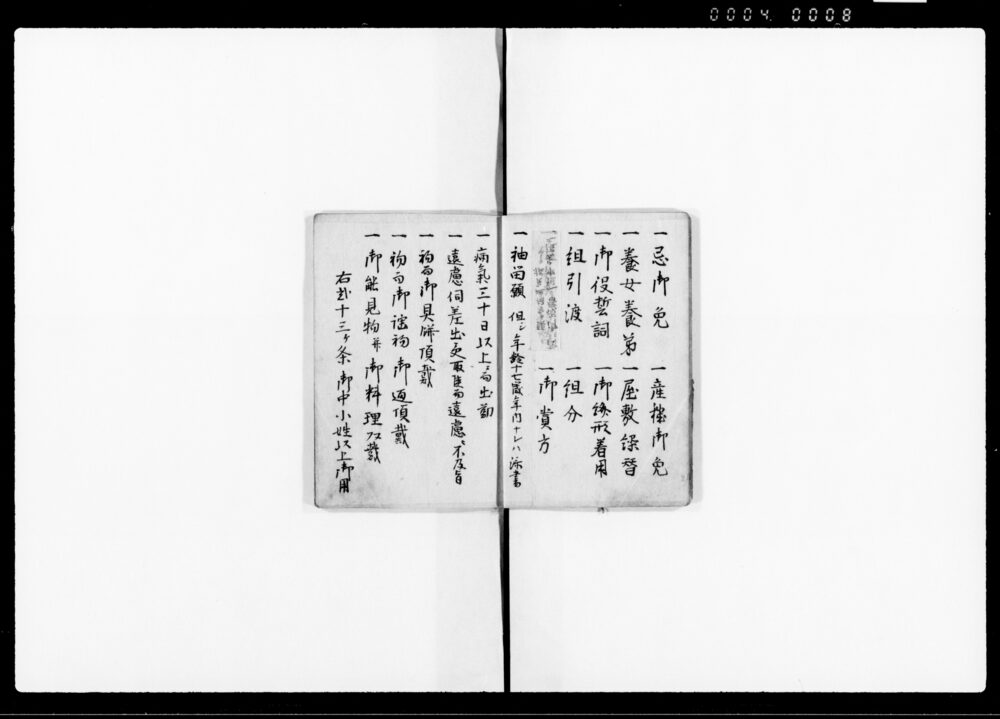 0004 0008
一 忌御免 一 産穢御免
一 養女養弟 一 屋敷繰替
一 御役誓詞 一 御紋形着用
一 組引渡 一 組分
一 御賞方
一 袖留願 但シ年齢十七歳年内ナレハ添書
一 病氣三十日以上ニ而出勤
一 遠慮伺差出 遠慮ニ不及旨
一 初而御具餅頂戴
一 初而御謡初御 頂戴
一 御能見物并御料理頂戴
右 十三ヶ条御中小姓以上御用